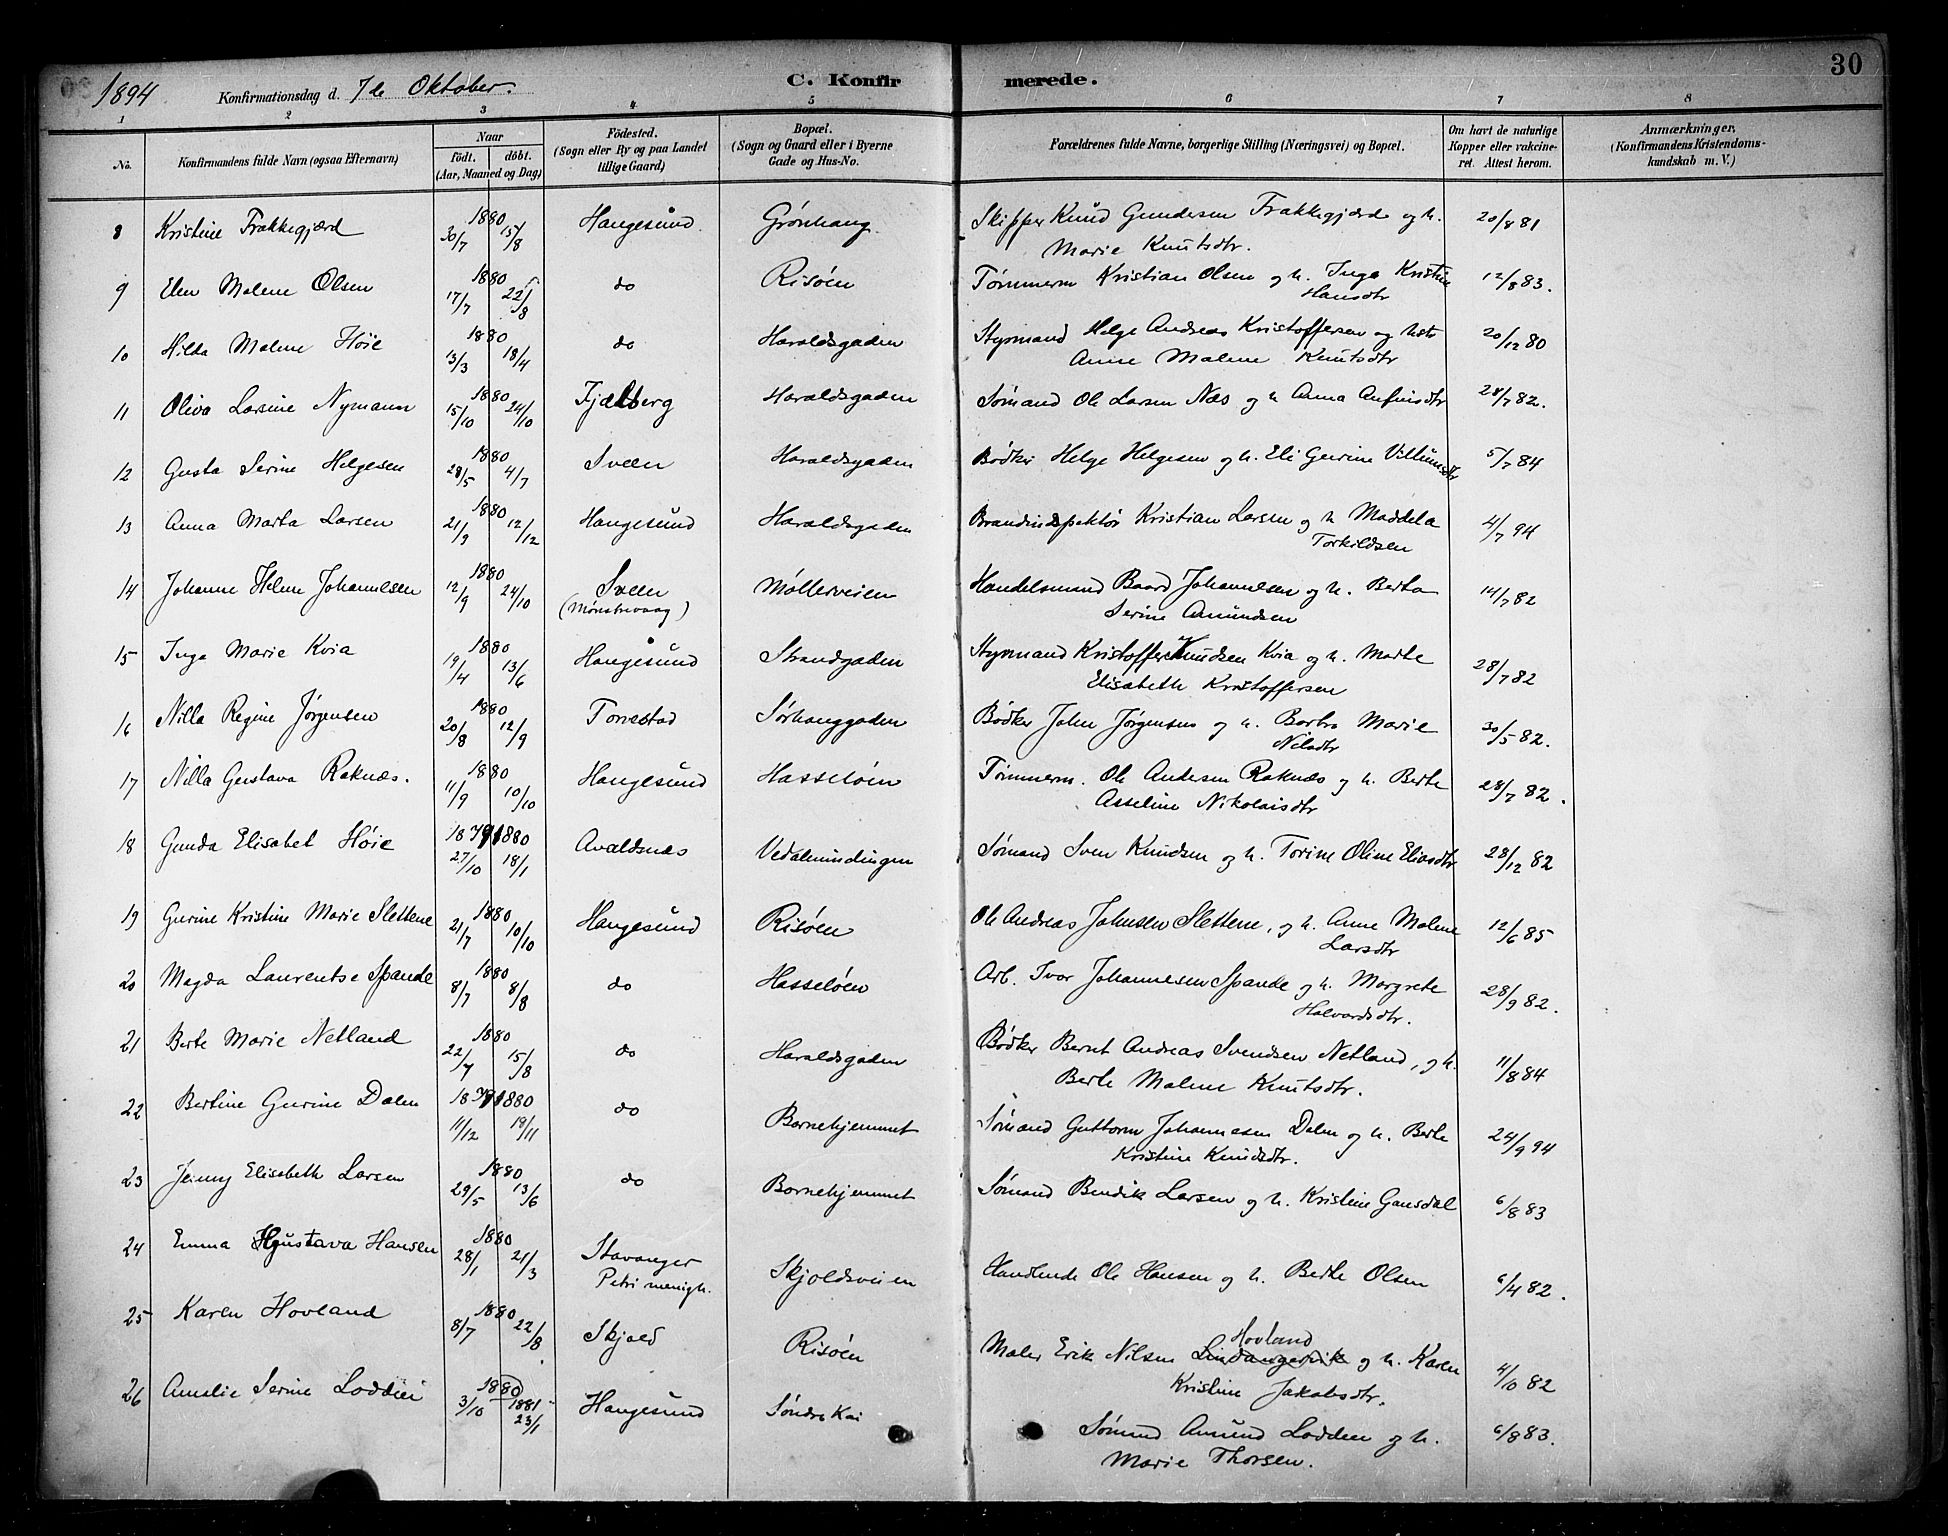 1894 Konfirmationsdag d. 7de Oktober. C. Konfirmerede. 30
1 2 3 4 5 6 7 8
No. Konfirmandens fulde Navn (ogsaa Efternavn) Naar födt. döbt. (Aar, Maaned og Dag) Födested. (Sogn eller By og paa Landet tillige Gaard) Bopæl. (Sogn og Gaard eller i Byerne Gade og Hus-No. Forældrenes fulde Navne, borgerlige Stilling (Næringsvei) og Bopæl. Om havt de naturlige Kopper eller vakcineret. Attest herom. Anmærkninger, (Konfirmandens Kristendomskundskab m. V.)
8 Kristine Frakkegjærd 1880 30/7 15/8 Haugesund Grønhaug. Skipper Knud Gundersen Frakkegjærd og h. 20/8 81
Marie Knutsdtr.
9 Elen Malene Olsen 1880 17/7 22/8 do Risøen Tømmerm Kristian Olsen og h. Inga Kristine 12/8 83.
Hansdtr
10 Hilda Malene Høie 1880 13/3 18/4 do Haraldsgaden Styrmand Helge Andreas Kristoffersen og hstr 20/12 80
Anne Malene Knutsdtr
11 Oliva Larsine Nymann 1880 15/10 24/10 Fjælberg Haraldsgaden Sømand Ole Larsen Næs og h Anna Anfinsdtr 28/7 82.
12 Gusta Serine Helgesen 1880 28/5 4/7 Sveen Haraldsgaden Bødker Helge Helgesen og h. Eli Gurine Villumsdtr 5/7 84
13 Anna Marta Larsen 1880 21/9 12/12 Haugesund Haraldsgaden Brandinspektør Kristian Larsen og h Maddela 4/7 94
Torkildsen
14 Johanne Helene Johannesen 1880 12/9 24/10 Sveen Møllerveien Handelsmand Baard Johannesen og h. Berta 14/7 82
(Mønstrevaag) Serine Amundsen
15 Inga Marie Kvia 1880 19/4 13/6 Haugesund Strandgaden Styrmand Kristoffer Knudsen Kvia og h. Marte 28/7 82
Elisabeth Kristoffersen
16 Nilla Regine Jørgensen 1880 20/8 12/9 Torvestad Sørhauggaden Bødker John Jørgensen og h. Barbro Marie 30/5 82.
Nilsdtr
17 Nilla Gustava Raknæs. 1880 11/9 10/10 Haugesund Hasseløen Tømmerm. Ole Andersen Raknæs og h. Berte 28/7 82.
Asseline Nikolaisdtr
18 Gunda Elisabet Høie 1879 1880 27/10 18/1 Avaldsnæs Vedalmindingen Sømand Sven Knudsen og h. Torine Oline Eliasdtr 28/12 82
19 Gurine Kristine Marie Slettene 1880 21/7 10/10 Haugesund Risøen Ole Andreas Johnsen Slettene, og h. Anne Malene 12/6 85
Larsdtr
20 Magda Laurentse Spande 1880 8/7 8/8 do Hasseløen Arb. Ivar Johannesen Spande og h. Margrete 28/9 82.
Halvardsdtr.
21 Berte Marie Netland 1880 22/7 15/8 do Haraldsgaden Bødker Bernt Andreas Svendsen Netland, og h. 11/8 84
Berte Malene Knutsdtr.
22 Bertine Gurine Dalen 1879 1880 11/12 19/11 do Børnehjemmet Sømand Guttorm Johannesen Dalen og h. Berte 24/9 94
Kristine Knudsdtr.
23 Jenny Elisabeth Larsen 1880 29/5 13/6 do Børnehjemmet Sømand Bendik Larsen og h. Kristine Gausdal 6/8 83
24 Emma Gustava Hansen 1880 28/1 21/3 Stavanger Skjoldsveien Handlende Ole Hansen og h. Berte Olsen 6/4 82.
Petri menigh.
25 Karen Hovland 1880 8/7 22/8 Skjold Risøen Maler Erik Nilsen Hovland og h. Karen 4/10 82
Kristine Jakobsdtr.
26 Amalie Serine Lodden 1880 3/10 1881 23/1 Haugesund Søndre Kai Sømand Amund Lodden og h. 6/8 83.
Marie Thorsen.